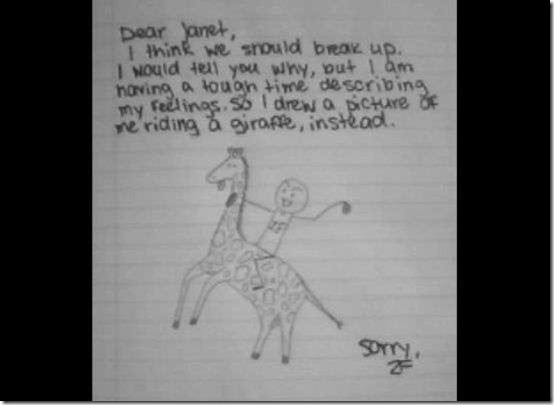 Dear Janet,
I think we should break up.
I would tell you why, but I am
having a tough time describing
my feelings. So I drew a picture of
me riding a giraffe, instead.
sorry,
ZF